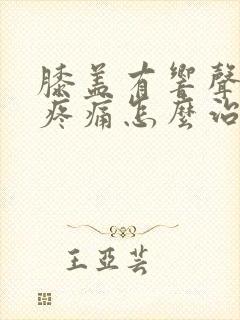 膝盖有響聲
疼痛怎麼治
王亞芸